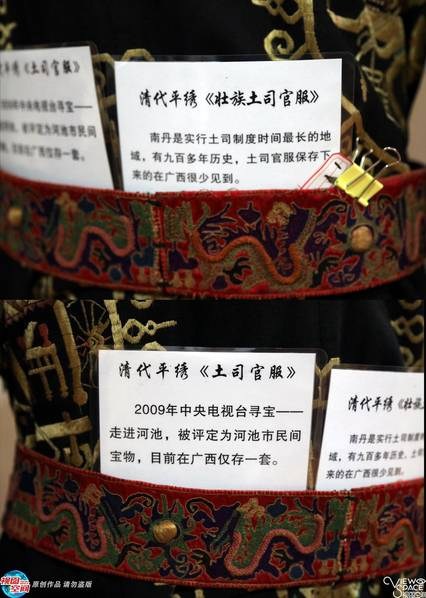 土司官服》
2009年中央电视台寻宝——
河池，被评定为河池市民间
目前在广西仅存一套。
清代平绣《壮族土司官服》
南丹是实行土司制度时间最长的地
域，有九百多年历史，土司官服保存下
来的在广西很少见到。
清代平绣《土司官服》
2009年中央电视台寻宝——
走进河池，被评定为河池市民间
宝物，目前在广西仅存一套。
清代平绣《壮族
南丹是实行土司制度
域，有九百多年历史，
来的在广西很少见到。
视窗空间 原创作品 请勿盗版
VIEW SPACE